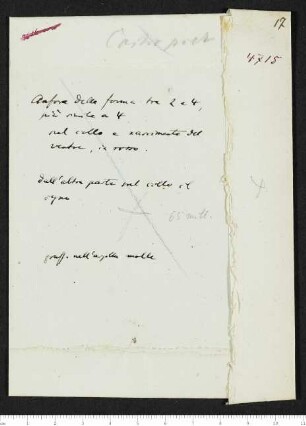 17
Castro poet
4715
Anfora della forma tra 2 e 4,
più simile a 4
nel collo e nascimento del
ventre, in rosso.
dall'altra parte nel collo il
segno
65 mill.
graff. nell'argilla molle